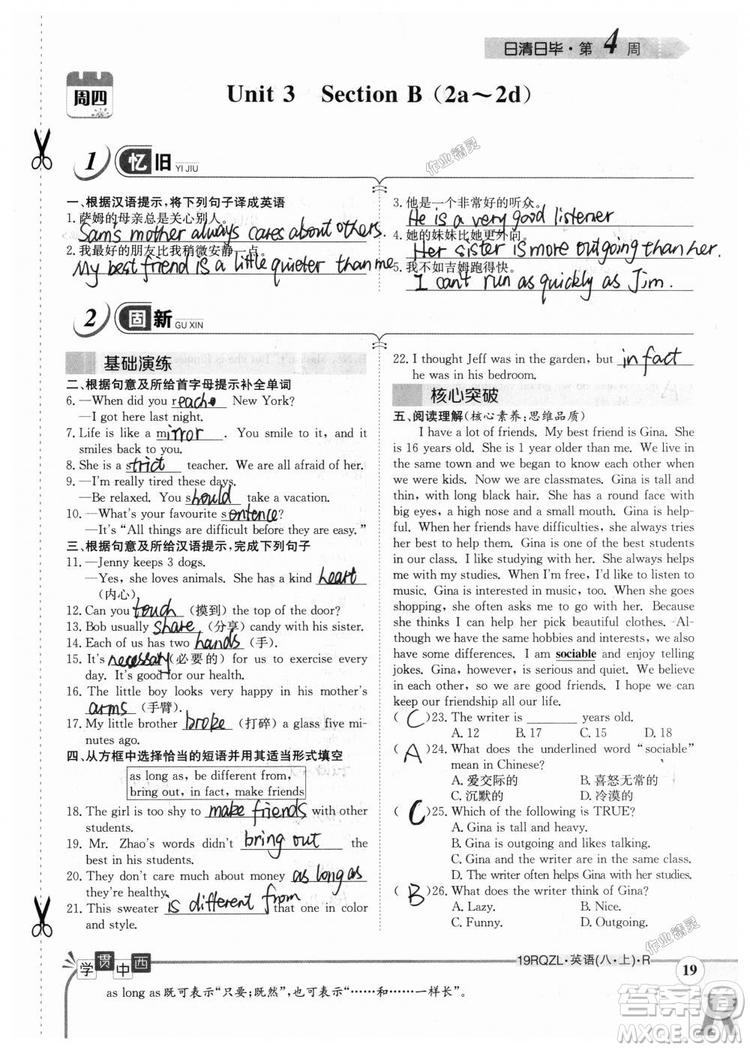 日清日毕·第4周
周四
Unit 3 Section B（2a～2d）
1 忆旧 YI JIU
一、根据汉语提示，将下列句子译成英语
1. 萨姆的母亲总是关心别人。
Sam's mother always cares about others.
2. 我最好的朋友比我稍微安静一点。
My best friend is a little quieter than me
3. 他是一个非常好的听众。
He is a very good listener
4. 她的妹妹比她更外向。
Her sister is more outgoing than her.
5. 我不如吉姆跑得快。
I can't run as quickly as Jim.
2 固新 GU XIN
基础演练
二、根据句意及所给首字母提示补全单词
6. —When did you reach New York?
—I got here last night.
7. Life is like a mirror. You smile to it, and it
smiles back to you.
8. She is a strict teacher. We are all afraid of her.
9. —I'm really tired these days.
—Be relaxed. You should take a vacation.
10. —What's your favourite sentence?
—It's "All things are difficult before they are easy."
三、根据句意及所给汉语提示，完成下列句子
11. —Jenny keeps 3 dogs.
—Yes, she loves animals. She has a kind heart
（内心）.
12. Can you touch（摸到）the top of the door?
13. Bob usually share（分享）candy with his sister.
14. Each of us has two hands（手）.
15. It's necessary（必要的）for us to exercise every
day. It's good for our health.
16. The little boy looks very happy in his mother's
arms（手臂）.
17. My little brother broke（打碎）a glass five mi-
nutes ago.
四、从方框中选择恰当的短语并用其适当形式填空
as long as, be different from,
bring out, in fact, make friends
18. The girl is too shy to make friends with other
students.
19. Mr. Zhao's words didn't bring out the
best in his students.
20. They don't care much about money as long as
they're healthy.
21. This sweater is different from that one in color
and style.
22. I thought Jeff was in the garden, but in fact
he was in his bedroom.
核心突破
五、阅读理解（核心素养：思维品质）
I have a lot of friends. My best friend is Gina. She
is 16 years old. She is 1 year older than me. We live in
the same town and we began to be friends when we
were kids. Now we are classmates. Gina is tall and
thin, with long black hair. She has a round face with
big eyes, a high nose and a small mouth. Gina is help-
ful. When her friends have difficulties, she always tries
her best to help them. Gina is one of the best students
in our class. I like studying with her and she helps
me with my studies. In our free time, I like to listen to
music. Gina is interested in music, too. When she goes
shopping, she often helps me pick beautiful clothes. Al-
though we have the same hobbies and interests, we have
some differences. Gina, however, is sociable and enjoy telling
jokes. Gina is serious and quiet. We are good friends. I will
keep our friendship all our life.
( C )23. The writer is ______ years old.
A. 12 B. 17 C. 15 D. 18
( A )24. What does the underlined word "sociable"
mean in Chinese?
A. 爱交际的 B. 喜怒无常的
C. 沉默的 D. 冷漠的
( C )25. Which of the following is TRUE?
A. Gina is tall and heavy.
B. Gina is outgoing and likes talking.
C. Gina and the writer are in the same class.
D. The writer often helps Gina with her studies.
( B )26. What does the writer think of Gina?
A. Lazy. B. Nice.
C. Funny. D. Outgoing.
学贯中西
19RQZL·英语(八·上)·R
19
as long as 既可表示"只要；既然"，也可表示"……和……一样长"。
作业精灵
作业精灵
作业精灵
答案圈
MXQE.COM